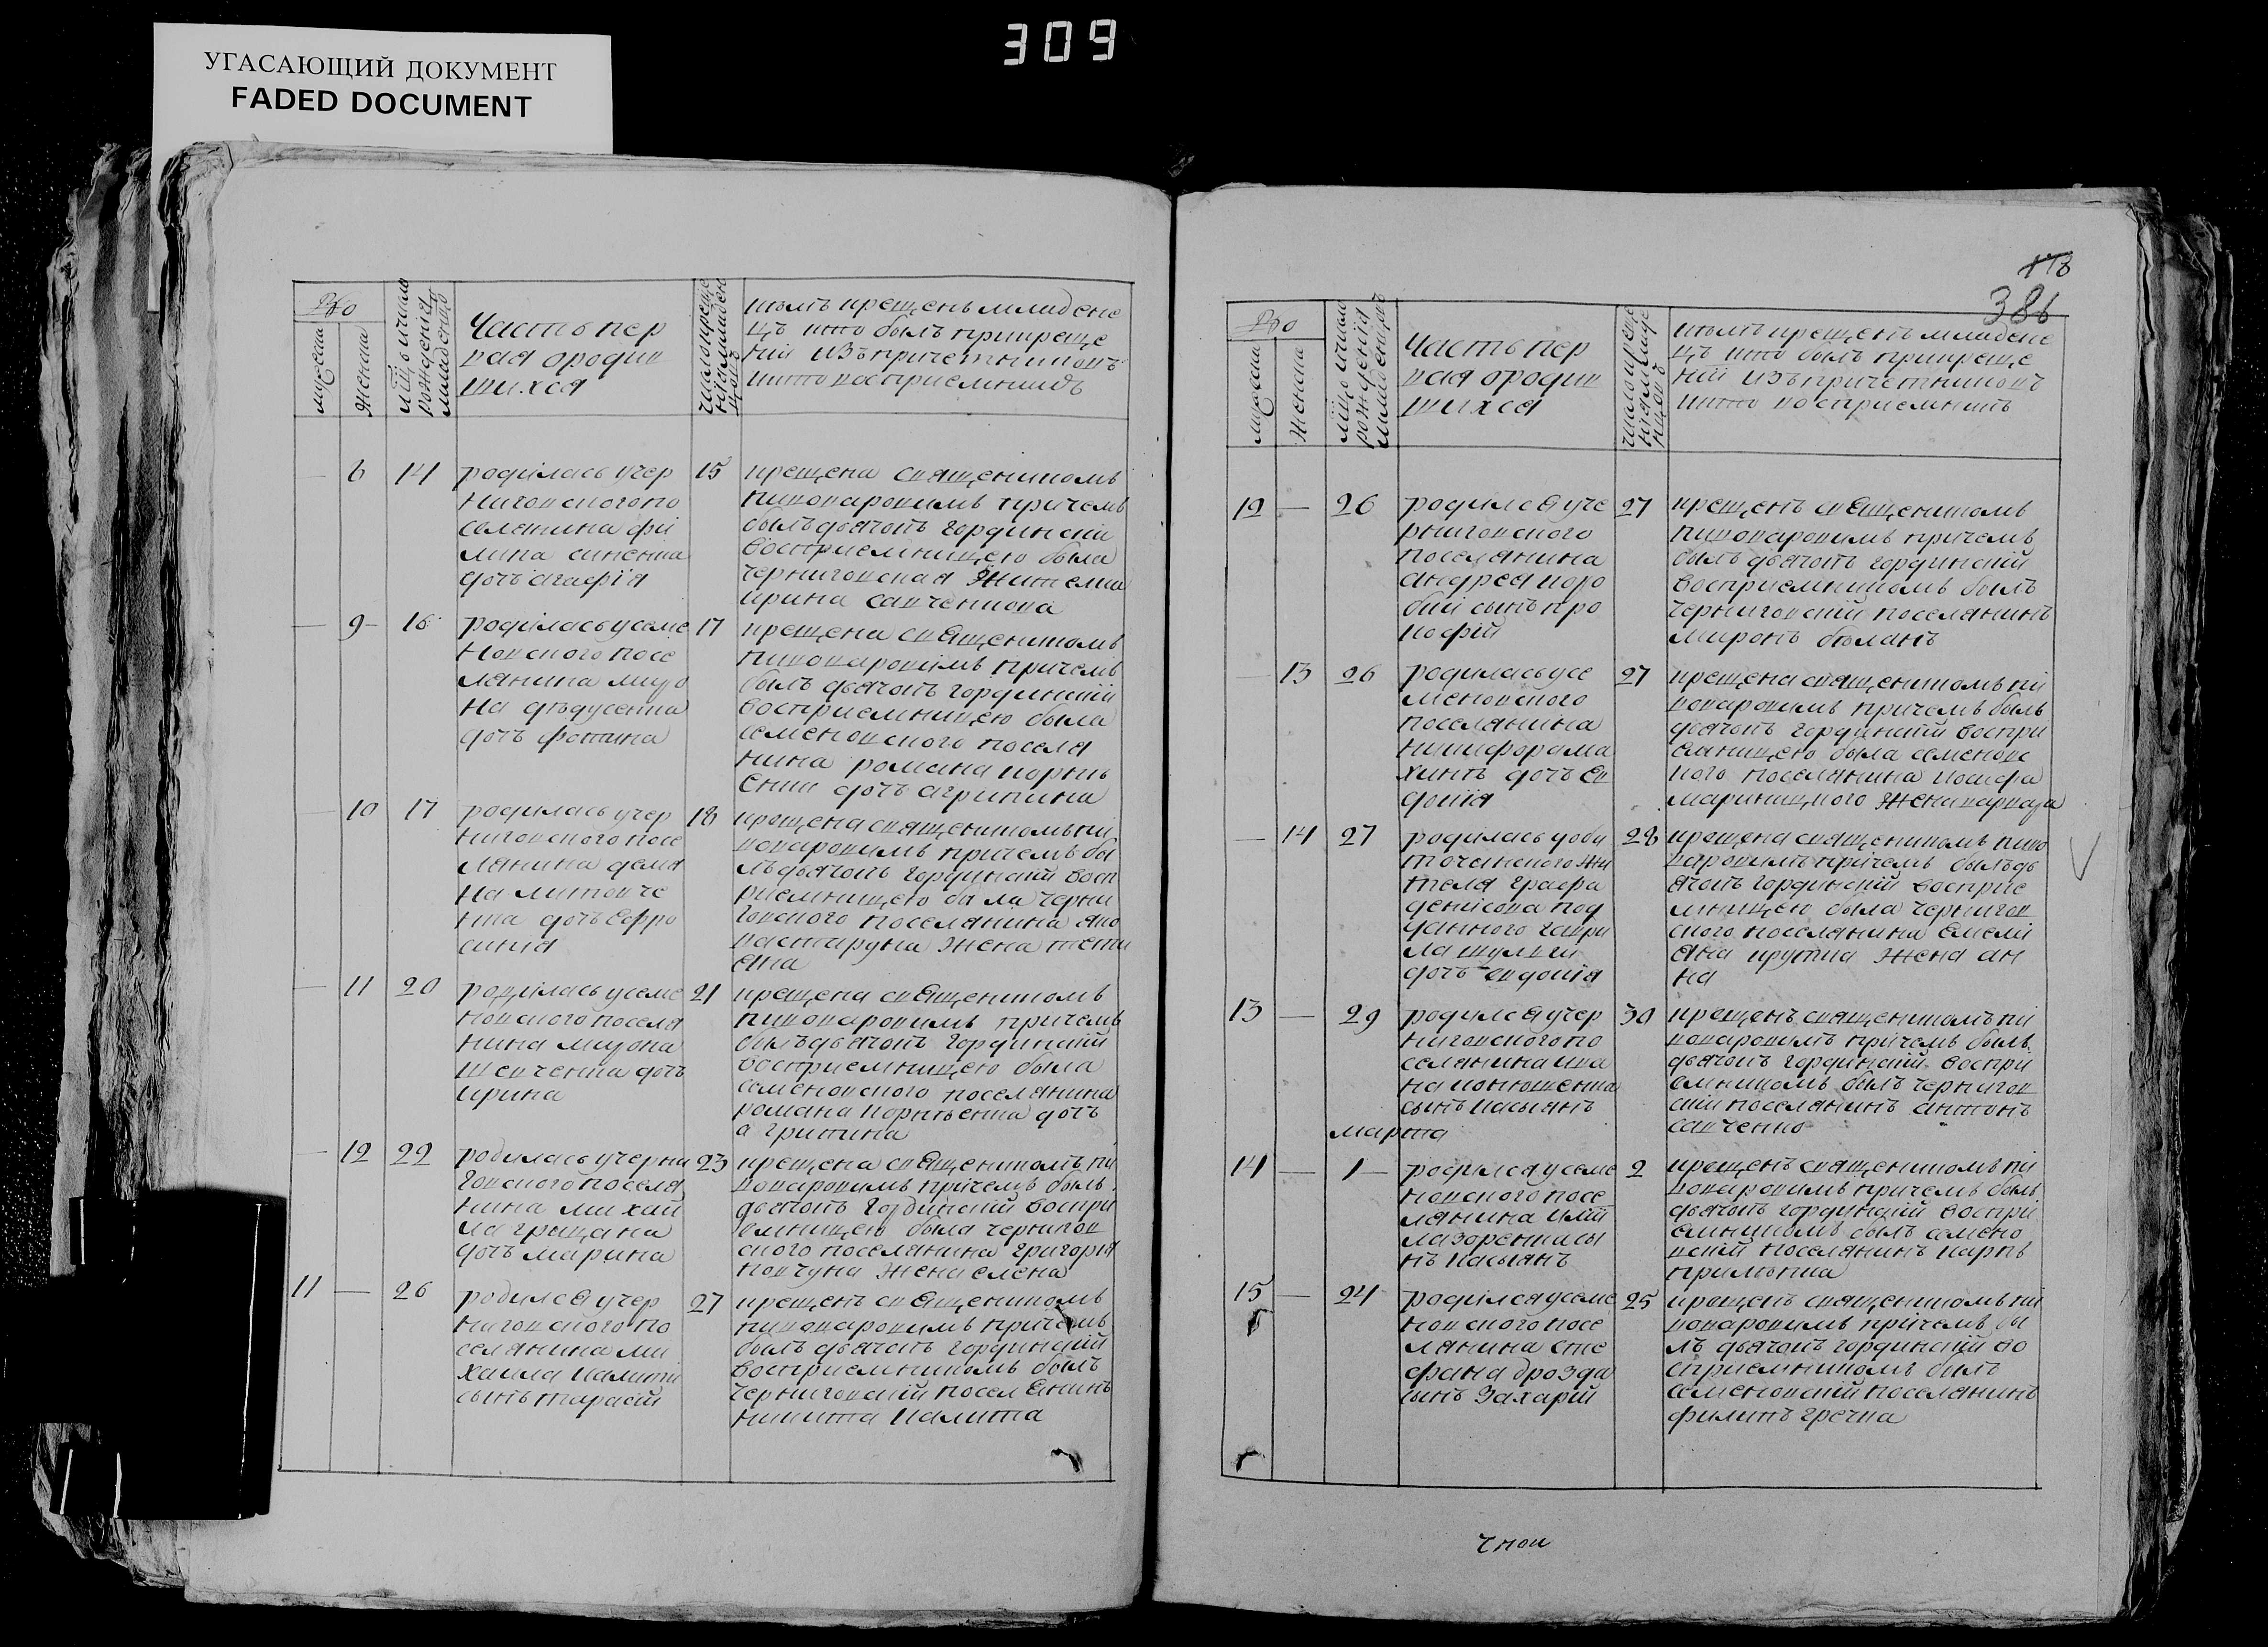 309
УГАСАЮЩИЙ ДОКУМЕНТ
FADED DOCUMENT
Часть пер
вая о родив
шихся
кѣмъ крещенъ младене
цъ кто былъ при креще
нiи изъ причетниковъ
и кто восприемникъ
мужеска
женска
— 8 14 родилась у чер
ниговского по
селянина фи
липа синенка
дочь агафiя
15 крещена священикомъ
пивоваровимъ причемъ
былъ дьячокъ гординскiи
восприемницею была
черниговская жителка
ирина савченкова
— 9 — 16 родiлась у семе
новского посе
лянина миро
на дѣдусенка
дочь фотина
17 крещена священикомъ
пивоваровимъ причемъ
былъ дьячокъ гординскiй
восприемницею была
семеновского поселя
нина романа корнѣ
енки дочь агрипина
— 10 17 родилась у чер
ниговского посе
лянина демя
на литовче
нка дочь ефро
синiя
18 крещена священикомъ пи
воваровимъ причемъ бы
лъ дьячокъ гординскiй восп
риемницею была черни
говского поселянина яко
ва старуна жена тети
ена
— 11 20 родiлась у семе
новского поселя
нина мирона
шевченка дочь
ирина
21 крещена священикомъ
пивоваровимъ причемъ
былъ дьячокъ гординскiй
восприемницею была
семеновского поселянина
романа корнѣенка дочь
агрипина
— 12 22 родилась у черни
говского поселя
нина михай
ла грищана
дочь марина
23 крещена священикомъ пи
воваровимъ причемъ былъ
дьячокъ гординскiй воспри
емницею была чернигов
ского поселянина григорiя
ковчуна жена елена
11 — 26 родился у чер
ниговского по
селянина ми
хаила калити
сынъ тарасiй
27 крещенъ священикомъ
пивоваровимъ причемъ
былъ дьячокъ гординскiй
восприемникомъ былъ
черниговскiй поселянинъ
никита калита
386
Часть пер
вая о родив
шихся
кѣмъ крещенъ младене
цъ кто былъ при креще
нiи изъ причетниковъ
и кто восприемникъ
мужеска
женска
12 — 26 родился у че
рниговского
поселянина
андрея коро
бки сынъ про
кофiй
27 крещенъ священикомъ
пивоваровимъ причемъ
былъ дьячокъ гординскiй
восприемникомъ былъ
черниговскiй поселянинъ
миронъ быланъ
— 13 26 родилась у се
меновского
поселянина
никифора ма
хинѣ дочь ев
докiя
27 крещена священикомъ пи
воваровимъ причемъ былъ
дьячокъ гординскiй воспри
емницею была семеновс
кого поселянина иосифа
мариницкого жена варвара
— 14 27 родилась у оби
точенского жи
теля графа
денисова под
данного гаври
ла шульги
дочь евдокiя
28 крещена священикомъ пиво
варовимъ причемъ былъ дь
ячокъ гординскiй восприе
мницею была чернигов
ского поселянина емелi
яна крутка жена ан
на
13 — 29 родился у чер
ниговского по
селянина ива
на конюшенка
сынъ касьянъ
30 крещенъ священикомъ пи
воваровимъ причемъ былъ
дьячокъ гординскiй воспри
емникомъ былъ чернигов
скiй поселянинъ антонъ
савченко
марта
14 — 1 — родился у семе
новского посе
лянина илiи
лазоренка сы
нъ касьянъ
2 крещенъ священикомъ пи
воваровимъ причемъ былъ
дьячокъ гординскiй воспри
емникомъ былъ семено
вскiй поселянинъ карпъ
прилѣпка
15 — 24 родiлся у семе
новского посе
лянина сте
фана дрозда
сынъ захарiй
25 крещенъ священикомъ пи
воваровимъ причемъ бы
лъ дьячокъ гординскiй во
сприемникомъ былъ
семеновскiй поселянинъ
филипъ гречка